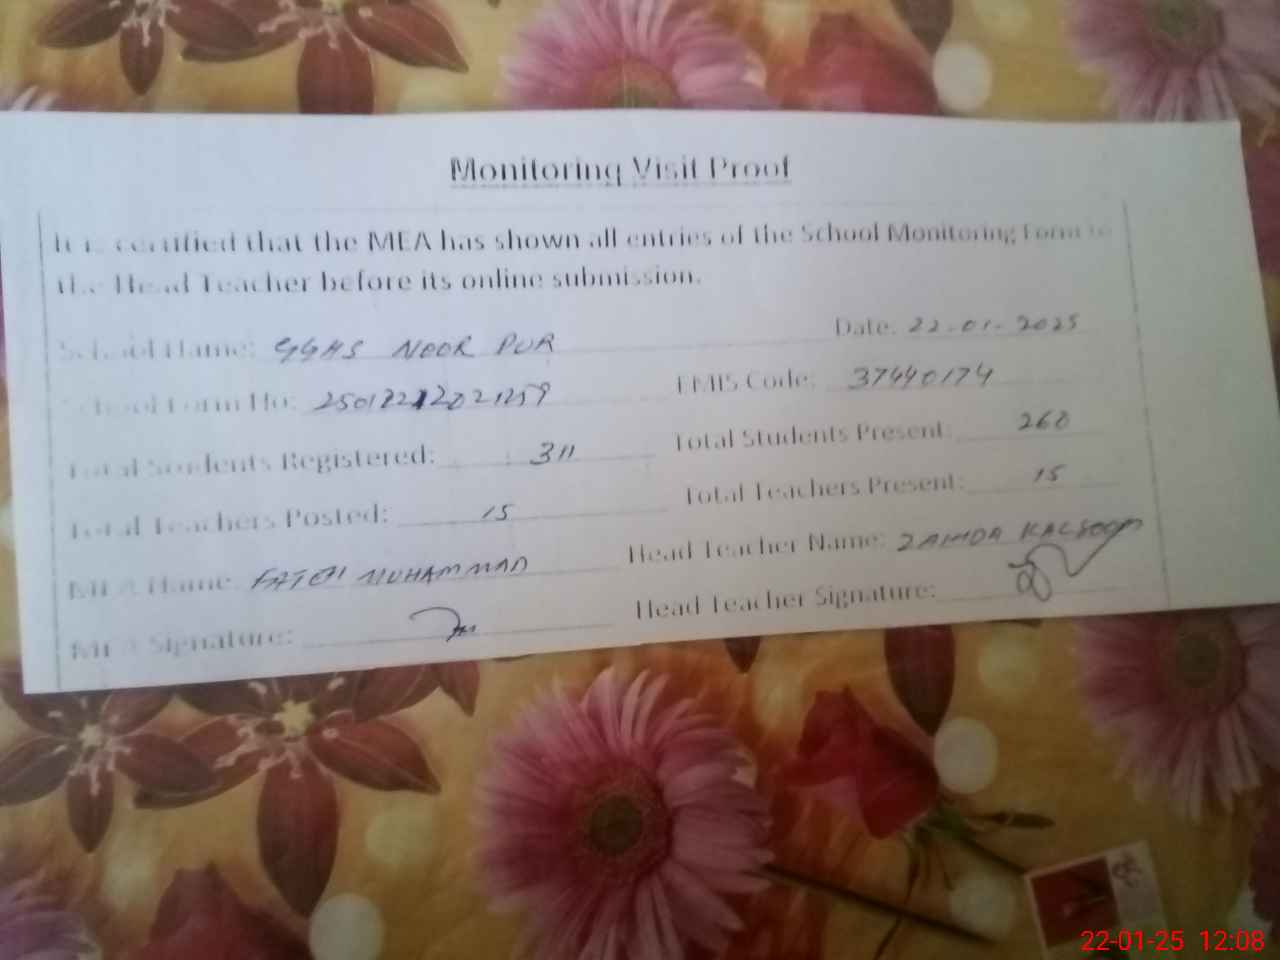 Monitoring Visit Proof
It is certified that the MEA has shown all entries of the School Monitoring Form to
the Head Teacher before its online submission.
School Name: GGHS NOOR PUR Date: 22-01-2025
School Form No: EMIS Code: 37440174
Total Students Registered: 311 Total Students Present: 260
Total Teachers Posted: 15 Total Teachers Present: 15
MEA Name: FATEH MUHAMMAD Head Teacher Name: ZAHIDA KALSOOM
MEA Signature: Head Teacher Signature:
22-01-25 12:08